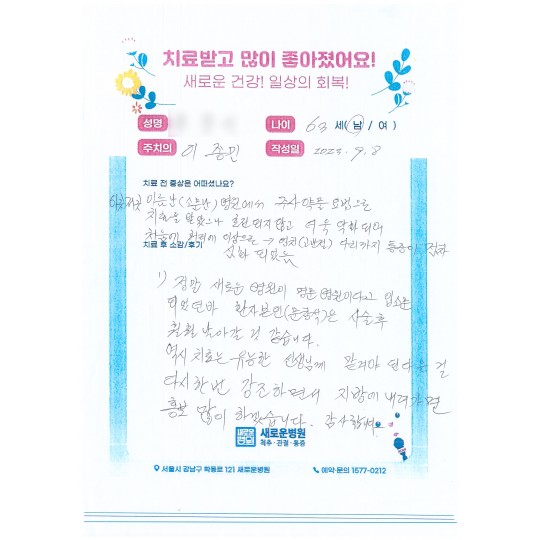 치료받고 많이 좋아졌어요!
새로운 건강! 일상의 회복!
성명 나이 63 세( 남 / 여 )
주치의 이종민 작성일 2025. 9. 8
치료 전 증상은 어떠셨나요?
이름난(소문난) 병원에서 주사 약물 요법으로
치료을 받았으나 호전되지 않고 더욱 악화되어
이상으로 → 다리까지 통증이 점차
치료 후 소감/후기
심화 되었음
1) 정말 새로운 병원이 명품 병원이다고 입소문
환자본인(윤)은 시술후
훨훨 날아갈 것 같습니다.
역시 치료는 유능한 선생님께 맡겨야 된다는 걸
다시한번 강조하면서 지방에 내려가면
홍보 많이 하겠습니다. 감사합니다.
새로운병원
척추·관절·통증
서울시 강남구 학동로 121 새로운병원 예약·문의 1577-0212